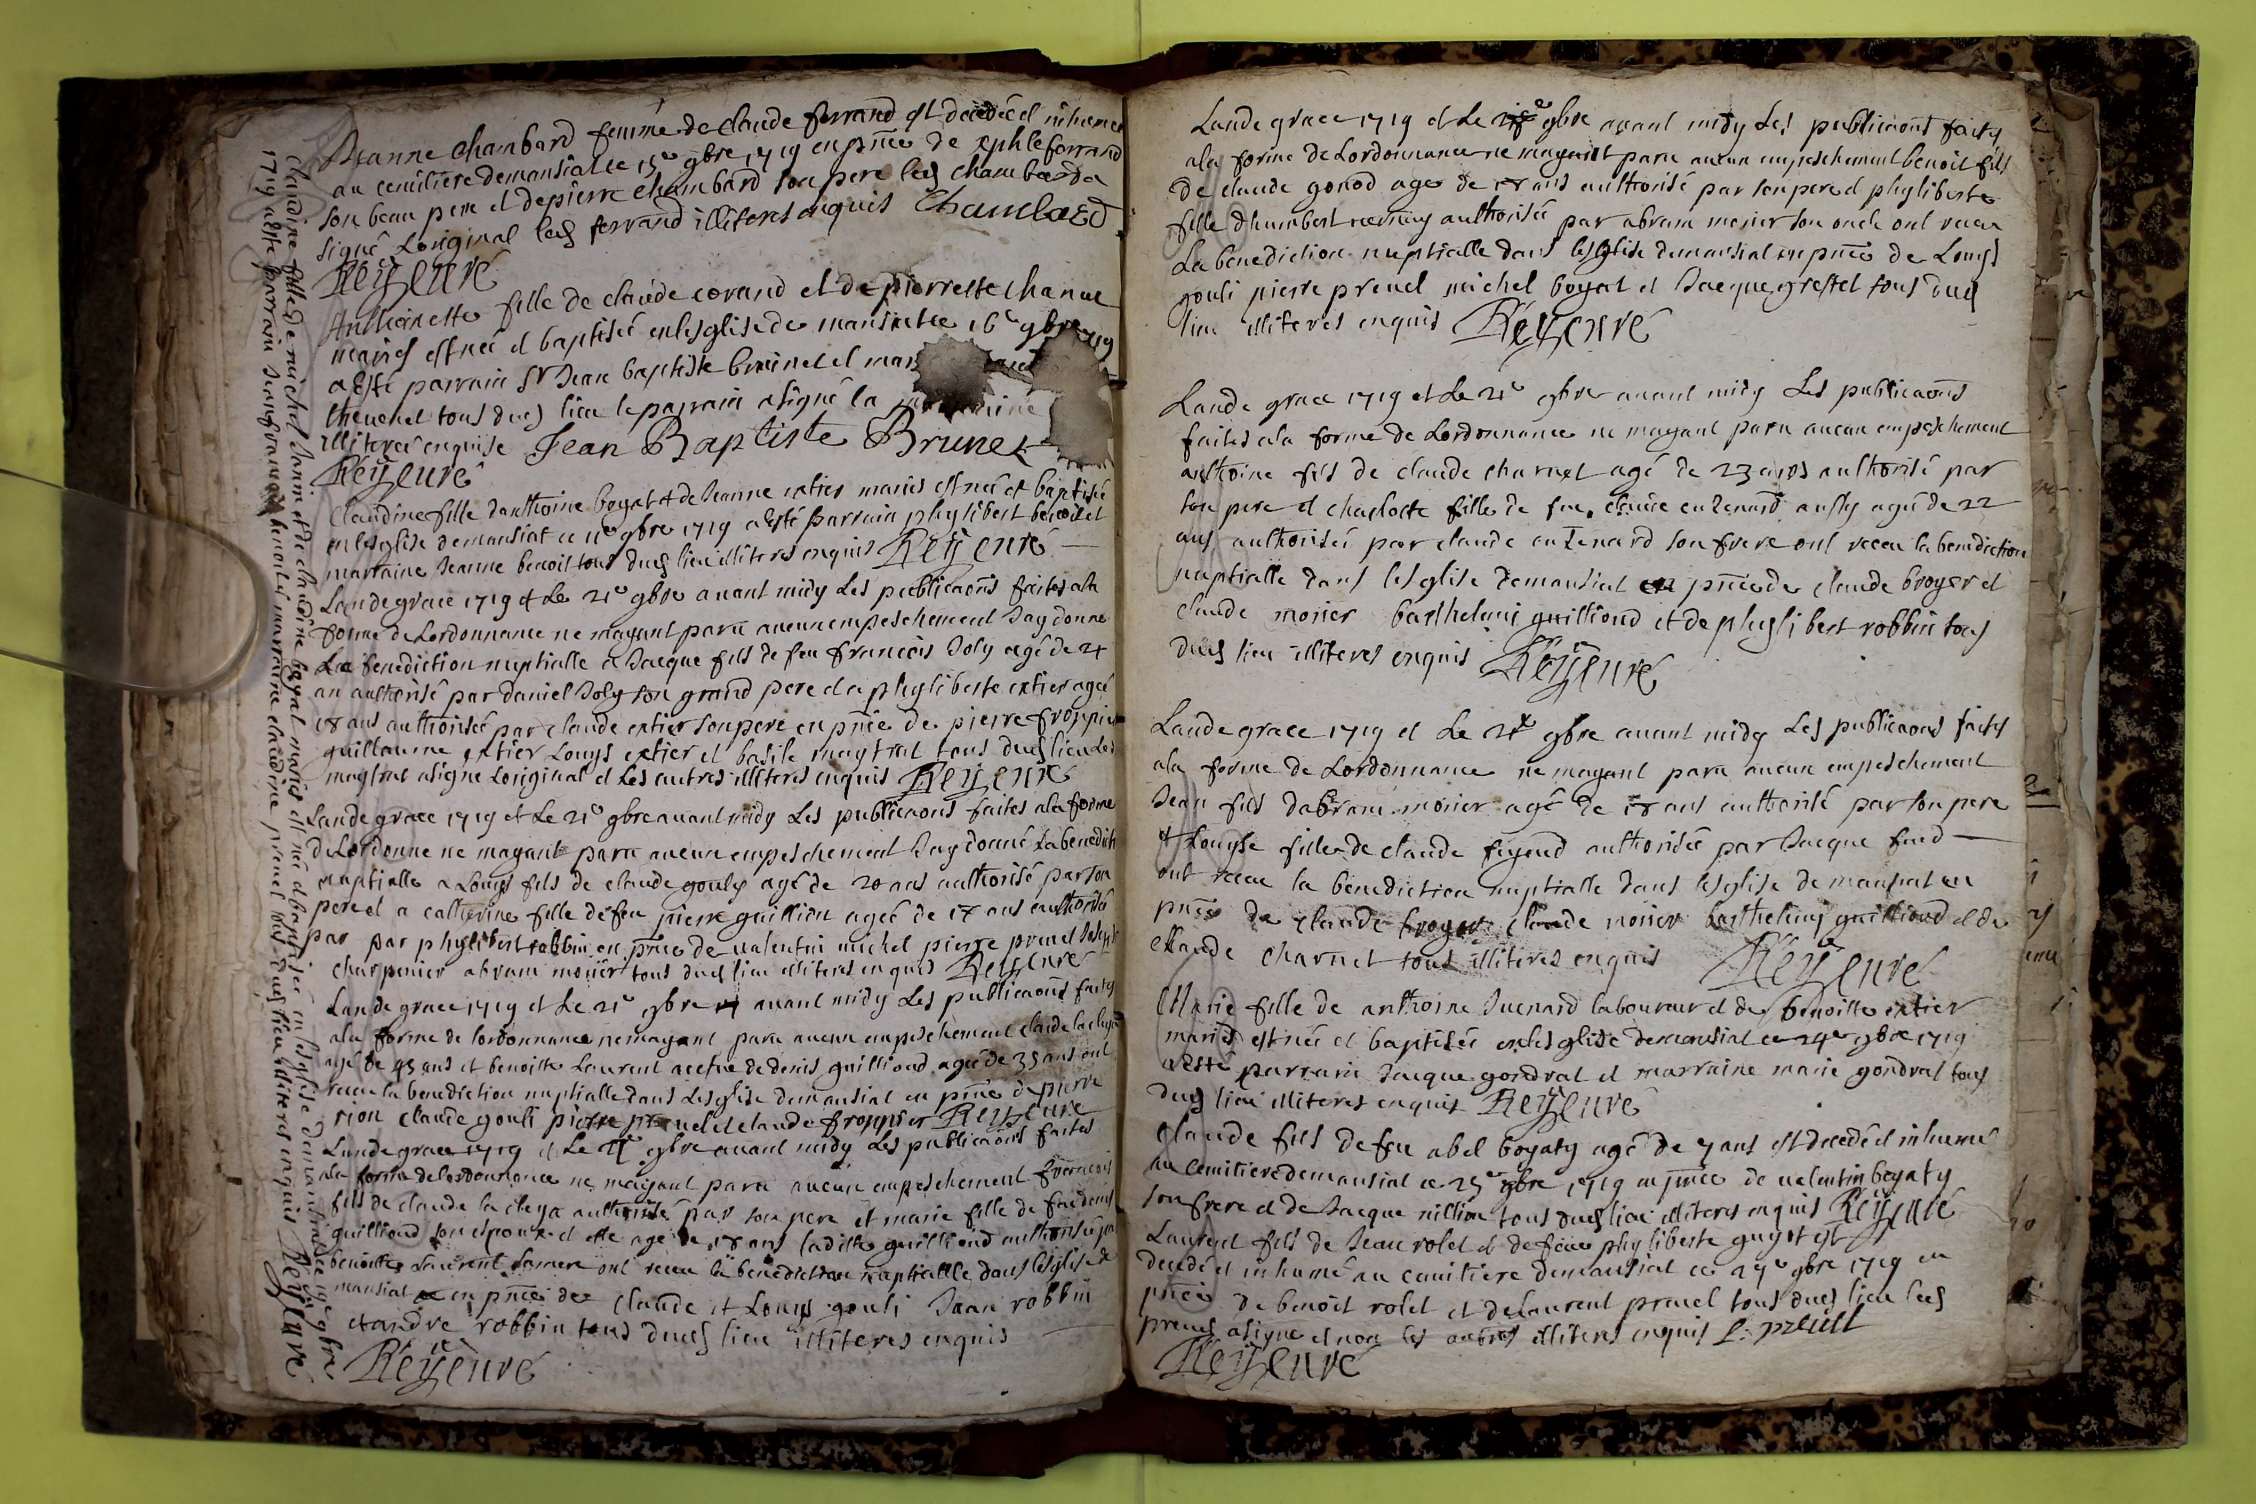 Jeanne chambard femme de claude ferrand est decedée et inhumée
au cemitiere demansiat ce 15e 9bre 1719 en pnce de ferrand
son beau pere et de pierre chambard son pere led chambard a
signé Loriginal led ferrand illiteres enquis Chambard
Reÿeuré
Anthoinette fille de claude corand et de pierrette chanue
mariés est née et baptisée en lesglise de mansiat ce 16e 9bre 1719
a esté parrain Sr Jean baptiste brunet et
thevenet tous dud lieu le parrain a signé la
illiterée enquise Jean Baptiste Brunet
Reÿeuré
Claudine fille danthoine boyat et de Jeanne extier mariés est née et baptisée
en lesglise demansiat ce 9bre 1719 a esté parrain phylibert benoit et
marraine Jeanne benoit tous dud lieu illiteres enquis Reÿeuré
Lan de grace 1719 et Le 21e 9bre avant midy Les publicaons faites a la
forme de Lordonnance ne mayant paru aucun empeschement Jay donné
La benediction nuptialle a Jacque fils de feu francois Joly agé de 24
an authorisé par daniel Joly son grand pere et a phyliberte extier agée
18 ans authorisée par claude extier son pere en pnce de pierre froppier
guillaume extier Louys extier et basile maytrat tous dud lieu Led
maytrat a signé Loriginal et Les autres illiteres enquis Reÿeuré
Lan de grace 1719 et Le 21e 9bre avant midy Les publicaons faites a la forme
de Lordonne ne mayant paru aucun empeschement Jay donné La benediction
nuptialle a Louys fils de claude gouly agé de 20 ans authorisé par son
pere et a catherine fille de feu pierre guillion agée de 17 ans authorisée
par par phylibert robbin en pnce de valentin michel pierre prevel Joseph
charpenier abram monier tous dud lieu illiteres enquis Reÿeuré
Lan de grace 1719 et Le 21e 9bre avant midy Les publicaons faites
a la forme de lordonnance ne mayant paru aucun empeschement claude la cleya
agé de 45 ans et benoitte Laurent veefve de denis guilliond agée de 35 ans ont
receu la benediction nuptialle dans Lesglise demansiat en pnce de pierre
rion claude gouli pierre prevel et claude froppier Reÿeuré
Lan de grace 1719 et Le 9bre avant midy Les publicaons faites
a la forme de lordonnance ne mayant paru aucun empeschement francois
fils de claude la cleya authorisé par son pere et marie fille de feu denis
guilliond son espouse et elle agé de 18 ans laditte guilliond authorisée par
benoitte Laurent sa mere ont receu la benediction nuptialle dans lesglise de
mansiat en pnce de claude et Louys gouli Jean robbin
et andré robbin tous dud lieu illiteres enquis
Reÿeuré
Claudine fille de michel Janin et de claudine boyat mariés est née et baptisée en lesglise demansiat ce 9bre
1719 a esté parrain Jean francois benoit et marraine claudine prevel tous dud lieu illiteres enquis Reÿeuré
Lan de grace 1719 et Le 9bre avant midy Les publicaons faites
a la forme de Lordonnance ne mayant paru aucun empeschement benoit fils
de claude gonod agé de 18 ans authorisé par son pere et phyliberte
fille dhumbert authorisée par abram monier son oncle ont receu
La benediction nuptialle dans lesglise demansiat en pnce de Louys
gouli pierre prevel michel boyat et Jacque grestel tous dud
lieu illiteres enquis Reÿeuré
Lan de grace 1719 et Le 21e 9bre avant midy Les publicaons
faites a la forme de Lordonnance ne mayant paru aucun empeschement
anthoine fils de claude charnet agé de 23 ans authorisé par
son pere et charlotte fille de feu claude cuzenard aussy agée de 22
ans authorisée par claude cuzenard son frere ont receu la benediction
nuptialle dans lesglise demansiat en pnce de claude broyer et
claude monier barthelemi guilliond et de phylibert robbin tous
dud lieu illiteres enquis Reÿeuré
Lan de grace 1719 et Le 9bre avant midy Les publicaons faites
a la forme de Lordonnance ne mayant paru aucun empeschement
Jean fils dabram monier agé de 18 ans authorisé par son pere
et Louyse fille de claude feyend authorisée par Jacque
ont receu la benediction nuptialle dans lesglise de mansiat en
pnce de claude broyer claude monier barthelemy guilliond et de
claude charnet tous illiteres enquis Reÿeuré
Marie fille de anthoine Juenard laboureur et de benoitte extier
mariés est née et baptisée en lesglise demansiat ce 24e 9bre 1719
a esté parrain Jacque gondrat et marraine marie gondrat tous
dud lieu illiteres enquis Reÿeuré
Claude fils de feu abel boyaty agé de 7 ans est decedé et inhumé
au cemitiere demansiat ce 25e 9bre 1719 en pnce de valentin boyaty
son frere et de Jacque nillion tous dud lieu illiteres enquis Reÿeuré
Laurent fils de Jean rolet et de feue phyliberte guyot est
decedé et inhumé au cemitiere demansiat ce 27e 9bre 1719 en
pnce de benoit rolet et de laurent prevel tous dud lieu led
prevel a signé et non les autres illiteres enquis L. prevel
Reÿeuré